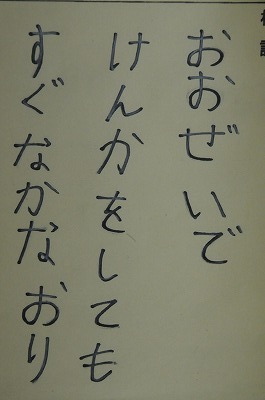 おおぜいで
けんかをしても
すぐなかなおり